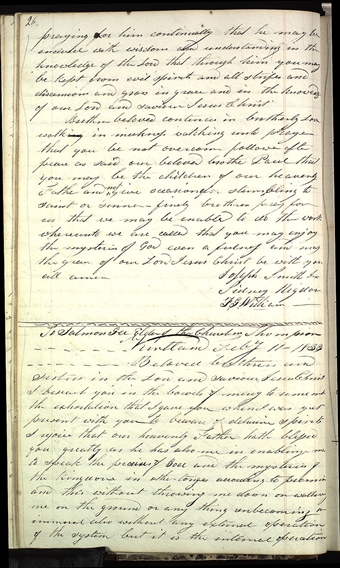 26.
praying for him continually that he may be
endued with wisdom and understanding in the
knowledge of the Lord that through him you may
be kept from evil spirits and all strifes and
dissension and grow in grace and in the knowled
of our Lord and saviour Jesus Christ
Brethren beloved continue in brotherly love
walk in meekness watching unto prayer
that you be not overcome follow after
peace as said our beloved brother Paul that
you may be the children of our heavenly
Father and not give occasion for stumbling to
saint or sinner finely brethren pray for
us that we may be enabled to do the work
whereunto we are called that you may enjoy
the mysteries of God even a fulness and may
the grace of our Lord Jesus Christ be with you
all amen
Joseph Smith Jr
Sidney Rigdon
F G William
To Salmon Gee Elder of the Church in Thompson
Kirtland Feby 11 1833
Beloved brethren and
sisters in the Lord and saviour Jesus Christ
I beseech you in the bowels of mercy to remember
the exhortation that I gave you when I was yet
present with you to beware of delusive spirits
I rejoice that our heavenly Father hath blessed
you greatly as he has also me in enabling me
to speak the praises of God and the mysteries of
the kingdom in other tongs according to promise
and this without throwing me down or wallowing
me on the ground or any thing unbecoming or
immoral also without any external opperation
of the system but it is the internal opperation